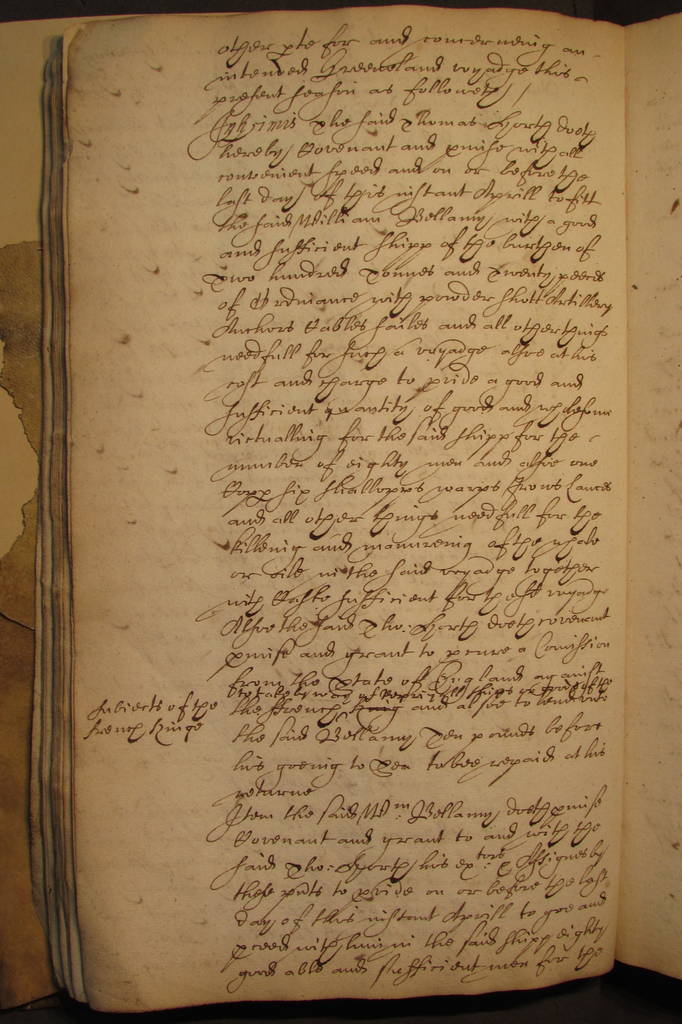 other pte for and concerneing an
intended Greeneland voyadge this
present season as followeth /
Inprimis The said Thomas Horth doeth
hereby Covenant and pmise with all
convenient speed and on or before the
last day of this instant Aprill to fitt
the said William Bellamy with a good
and sufficient shipp of the burthen of
Two hundred Tonnes and Twenty peeces
of Ordinance with powder shott Artillery
Anchors Cables sailes and all other things
needfull for such a voyadge alsoe at his
cost and charge to pvide a good and
sufficient quantity of good and wholesome
victualling for the said shipp for the
number of eighty men and alsoe one
six shallopps warps Lances
and all other things needfull for the
killeing and of the whale
or oile in the said voyadge together
with Caske sufficient for the sd voyadge
Alsoe the said Tho: Horth doeth covenant
pmise and grant to pcure a Comission
from the State of England against
to take by way of all shipps or goods of the
the French King and alsoe to lend unto
subiects of the
French Kinge
the said Bellamy Ten pounds before
his goeing to Sea to bee repaid at his
returne
Item the said Wm: Bellamy doeth pmise
Covenant and grant to and with the
said Tho: Horth his extors & Assignes by
these pnts to pvide on or before the last
day of this instant Aprill to goe and
pceed with him in the said shipp eighty
good able and sufficient men for the